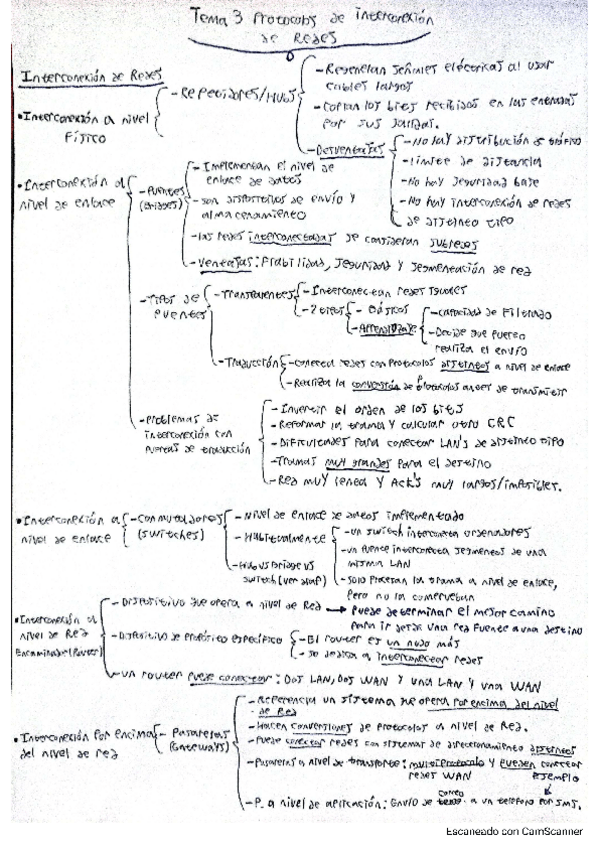 Tema 3 Protocolos de interconexión
de Redes
Interconexión de Redes
• Interconexión a nivel
Físico
- Repetidores/Hubs
- Regeneran señales eléctricas al usar
cables largos
- Copian los bits recibidos en las entradas
por sus salidas.
- Desventajas
- No hay distribución de tráfico
- Límite de distancia
- No hay seguridad
- No hay interconexión de redes
de distinto tipo
• Interconexión al
nivel de enlace
- Puentes
(Bridges)
- Implementan el nivel de
enlace de datos
- son dispositivos de envío y
almacenamiento
- las redes interconectadas se consideran subredes
- Ventajas: Fiabilidad, seguridad y segmentación de red
- Tipos de
puentes
- Transparentes
- Interconectan redes iguales
- 2 tipos
- Básicos
- Aprendizaje
- capacidad de Filtrado
- Decide que puerto
realiza el envío
- Traducción
- conecta redes con protocolos distintos a nivel de enlace
- Realiza la conversión de protocolos antes de transmitir
- Problemas de
interconexión con
puentes de traducción
- Invertir el orden de los bits
- Reformar la trama y calcular otro CRC
- Dificultades para conectar LAN's de distinto tipo
- Tramas muy grandes para el destino
- Red muy lenta y Ack's muy largos/imposibles.
• Interconexión a
nivel de enlace
- Conmutadores
(switches)
- Nivel de enlace de datos implementado
- Habitualmente
- un switch interconecta ordenadores
- un puente interconecta segmentos de una
misma LAN
- Hub vs Bridge vs
switch (ver diap)
- solo procesan la trama a nivel de enlace,
pero no la comprueban
• Interconexión al
nivel de Red
Encaminador (Router)
- Dispositivo que opera a nivel de Red → puede determinar el mejor camino
para ir desde una red fuente a una destino
- Dispositivo de propósito específico
- El router es un nodo más
- se dedica a interconectar redes
- un router puede conectar: Dos LAN, Dos WAN y una LAN y una WAN
• Interconexión por encima
del nivel de red
- Pasarelas
(Gateways)
- Referencia un sistema que opera por encima del nivel
de Red
- Hacen conversiones de protocolos a nivel de Red.
- Puede conectar redes con sistemas de direccionamiento distintos
- Pasarelas a nivel de transporte: multiprotocolo y pueden conectar
redes WAN
Ejemplo
- P. a nivel de aplicación: Envío de correo a un teléfono por SMS.
Escaneado con CamScanner